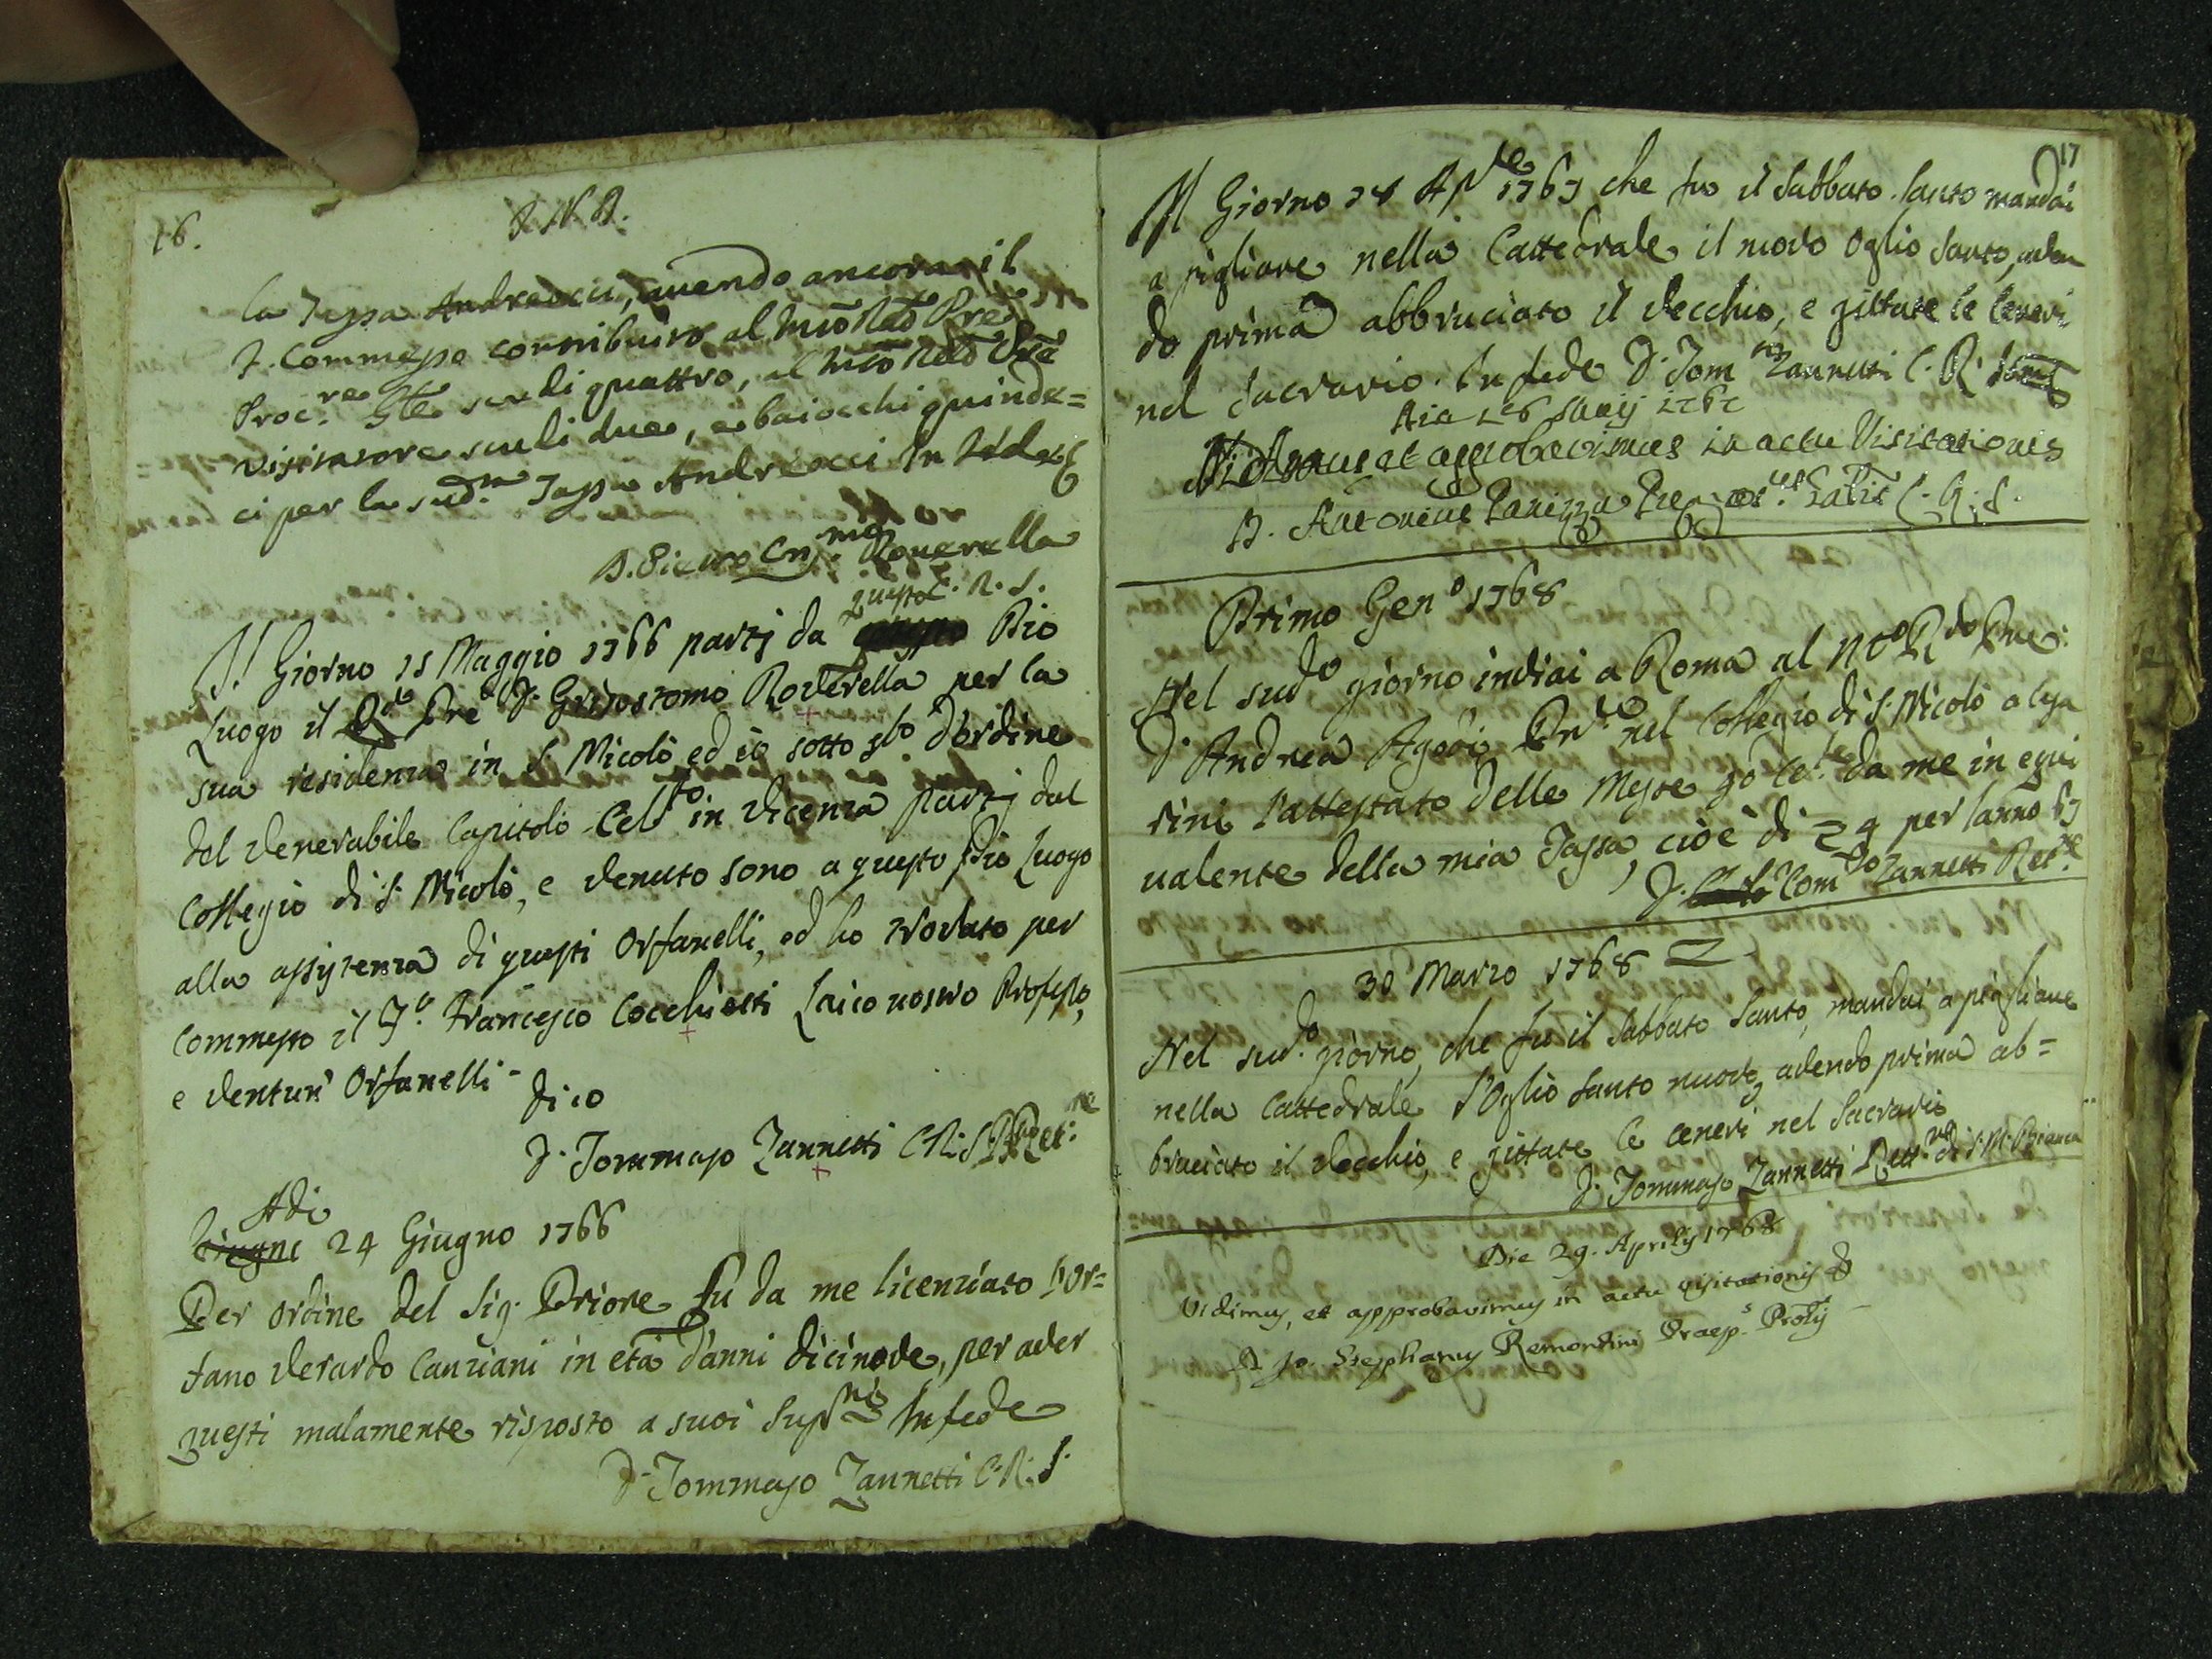 16.
J. N. D.
la Tassa Andreocci, avendo ancora il
P. Commesso contribuito al Mtõ Rdõ Pre
Proc.re Gle scudi quattro, al Mtõ Rdõ Pre
Visitatore scudi due, e baiocchi quinde=
ci per la sud.a Tassa Andreocci In fede
D. Pietro Cris.mo Roverella
C. R. S.
Il Giorno 15 Maggio 1766 partj da questo Pio
Luogo il Rdo Pre D. Grisostomo Roverella per la
sua residenza in S. Nicolò ed io sotto sto d'ordine
del Venerabile Capitolo Celto in Vicenza partj dal
Collegio di S. Nicolò, e venuto sono a questo Pio Luogo
alla assistenza di questi Orfanelli, ed ho trovato per
Commesso il F.o Francesco Cocchietti Laico nostro Professo,
e ventun' Orfanelli-
Dico
D. Tommaso Zannetti C. R. S. Ret.re
Adi
Giugne 24 Giugno 1766
Per ordine del Sig. Priore fu da me licenziato l'or=
fano Verardo Canziani in età d'anni dicinove, per aver
questi malamente risposto a suoi Supri In fede
D. Tommaso Zannetti C. R. S.
17
Il Giorno 18 Aple 1767 che fu il Sabbato Santo mandai
a pigliare nella Cattedrale il novo Oglio Santo, aven
do prima abbruciato il Vecchio, e gittate le Ceneri
nel Sacrario. In fede D. Tom.so Zannetti C. R.
Die 26 Maij 1767
Vidimus et approbavimus in actu Visitationis
D. Antonius Panizza Praepos.tus Gãlis C. R. S.
Primo Gen.o 1768
Nel sud.o giorno inviai a Roma al M.o R.do Pre
D. Andrea Agodi nel Collegio di S. Nicolò a Cesa
rini l'attestato delle Messe 90 Cel.te da me in equi
valente della mia Tassa, cioè di 9 per l'anno 67
D. Tom.so Zannetti Ret.re
30 Marzo 1768
Nel sud.o giorno, che fu il Sabbato Santo, mandai a pigliare
nella Cattedrale l'Oglio Santo nuovo, avendo prima ab=
bruciato il Vecchio, e gittate le ceneri nel Sacrario
D. Tommaso Zannetti Rett.re di S. M. Bianca
Die 29. Aprilis 1768
Vidimus, et approbavimus in actu visitationis
D. Jo. Stephanus Remondini Praep.s Prolis